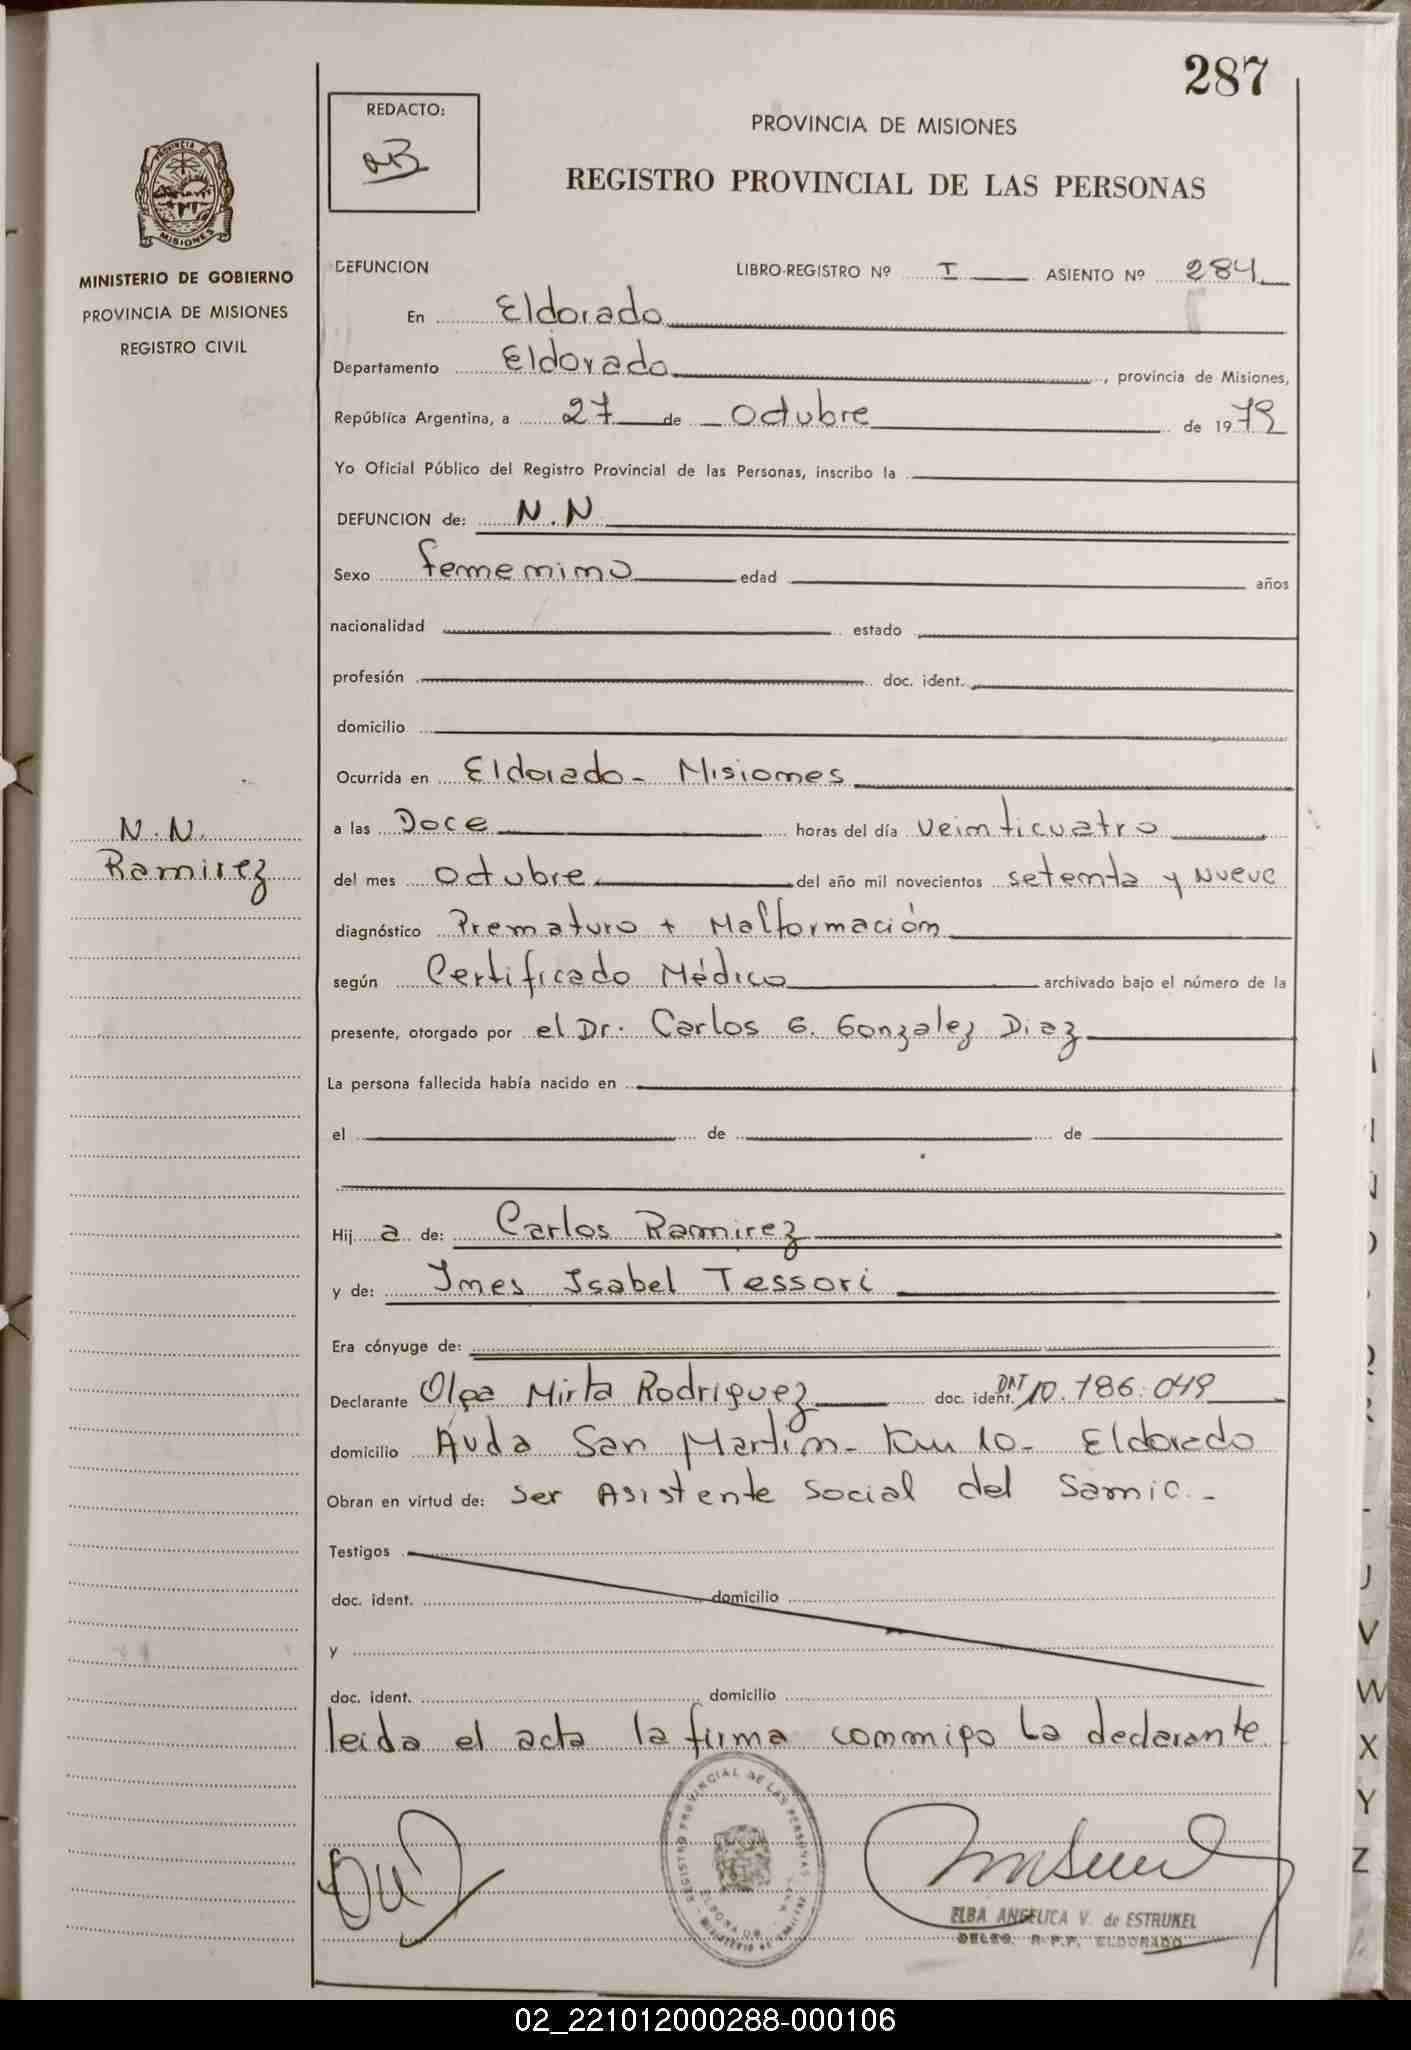 287
REDACTO:
PROVINCIA DE MISIONES
REGISTRO PROVINCIAL DE LAS PERSONAS
MISIONES
MINISTERIO DE GOBIERNO
PROVINCIA DE MISIONES
REGISTRO CIVIL
DEFUNCION LIBRO-REGISTRO Nº I ASIENTO Nº 284
En Eldorado
Departamento Eldorado, provincia de Misiones,
República Argentina, a 27 de Octubre de 1979
Yo Oficial Público del Registro Provincial de las Personas, inscribo la
DEFUNCION de: N.N
Sexo femenino edad años
nacionalidad estado
profesión doc. ident.
domicilio
Ocurrida en Eldorado - Misiones
N.N.
Ramirez
a las Doce horas del día veinticuatro
del mes octubre del año mil novecientos setenta y nueve
diagnóstico Prematuro + Malformación
según Certificado Médico archivado bajo el número de la
presente, otorgado por el Dr. Carlos G. Gonzalez Diaz
La persona fallecida había nacido en
el de de
Hij a de: Carlos Ramirez
y de: Ines Isabel Tessori
Era cónyuge de:
Declarante Olga Mirta Rodriguez doc. ident. DNI 10.186.049
domicilio Avda San Martin - Km 10 - Eldorado
Obran en virtud de: ser Asistente Social del Samic.-
Testigos
doc. ident. domicilio
y
doc. ident. domicilio
leida el acta la firma conmigo la declarante
REGISTRO PROVINCIAL DE LAS PERSONAS
ELBA ANGELICA V. de ESTRUKEL
DELEG. R.P.P. ELDORADO
V
W
X
Y
Z
02_221012000288-000106